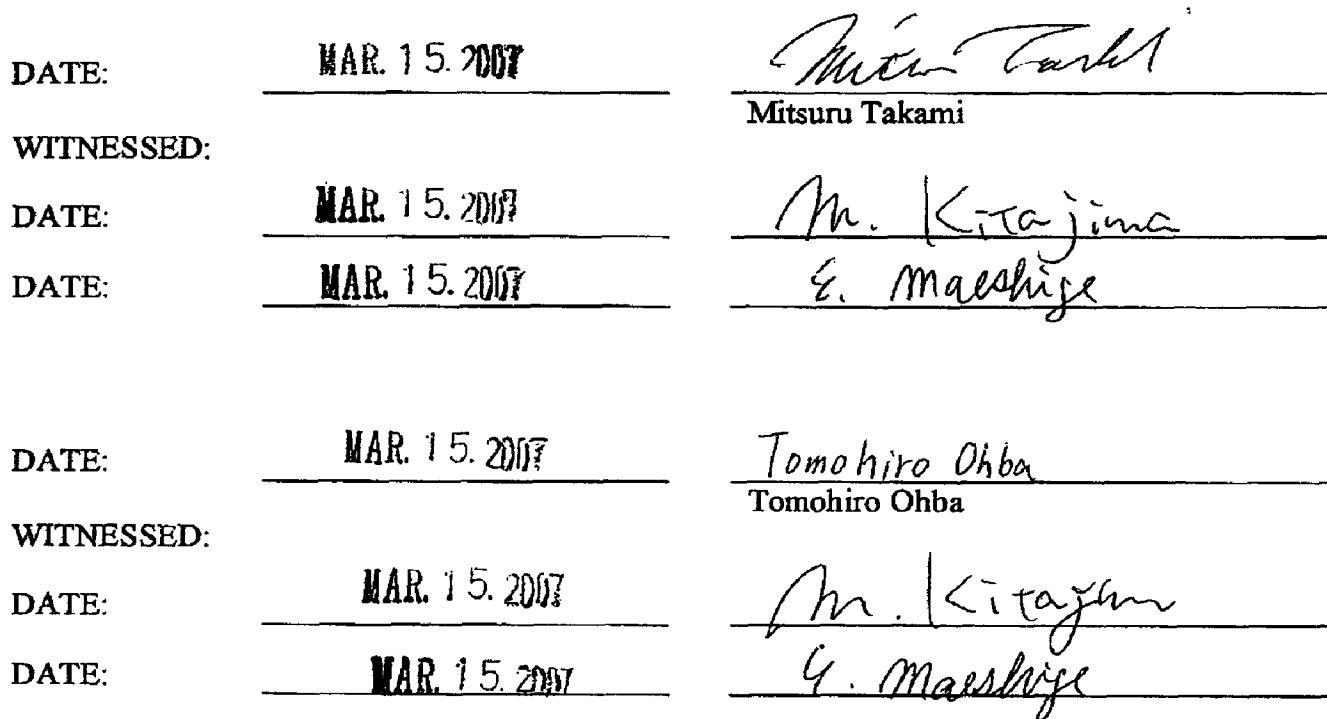 DATE: MAR. 15. 2007 Mitsuru Takami
Mitsuru Takami
WITNESSED:
DATE: MAR. 15. 2007 M. Kitajima
DATE: MAR. 15. 2007 E. Maeshige
DATE: MAR. 15. 2007 Tomohiro Ohba
Tomohiro Ohba
WITNESSED:
DATE: MAR. 15. 2007 M. Kitajima
DATE: MAR. 15. 2007 E. Maeshige